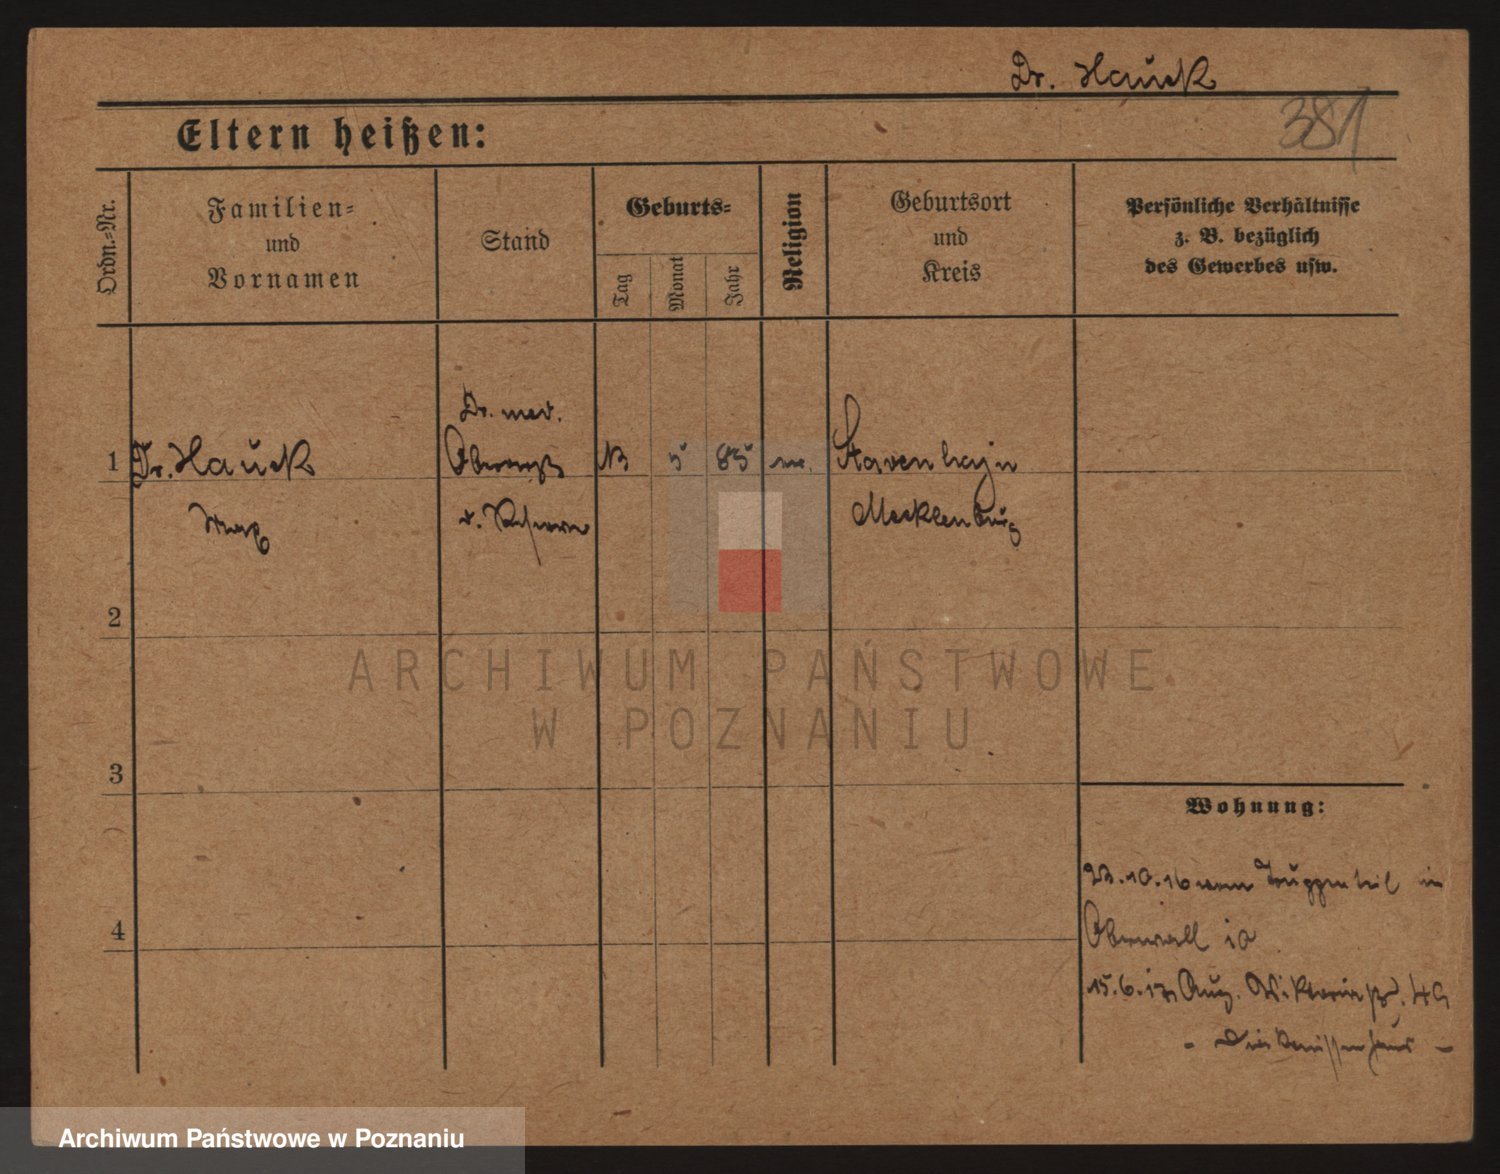 Dr. Hauck
381
Eltern heißen:
Ordn.-Nr.
Familien-
und
Vornamen
Stand
Geburts-
Tag
Monat
Jahr
Religion
Geburtsort
und
Kreis
Persönliche Verhältnisse
z. B. bezüglich
des Gewerbes usw.
1
Dr. Hauck
Max
Dr. med.
Oberarzt
d. Reserve
13
5
85
Stavenhagen
Mecklenburg
2
ARCHIWUM PAŃSTWOWE
W POZNANIU
3
Wohnung:
10.16 vom Truppenteil in
4
Oberwall 10
15.6.17 Aug. Viktoriastr. 49
- Diakonissenhaus -
Archiwum Państwowe w Poznaniu